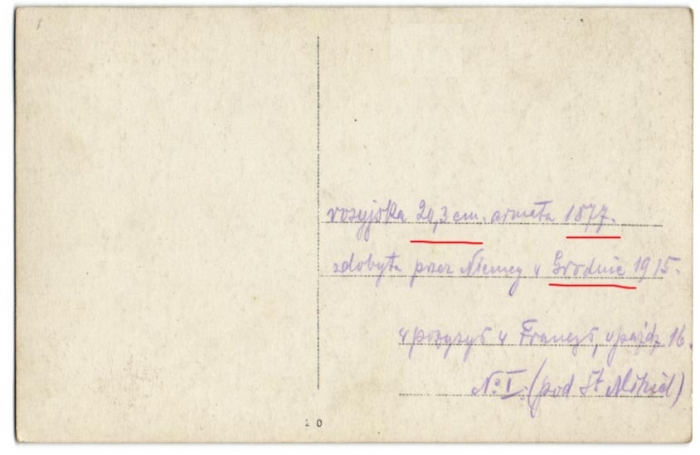 rosyjska 20,3 cm. armata 1877.
zdobyta przez Niemcy w Grodnie 1915.
w pozycyi w Francyi, 16.
No I. (pod St Mihiel)
20